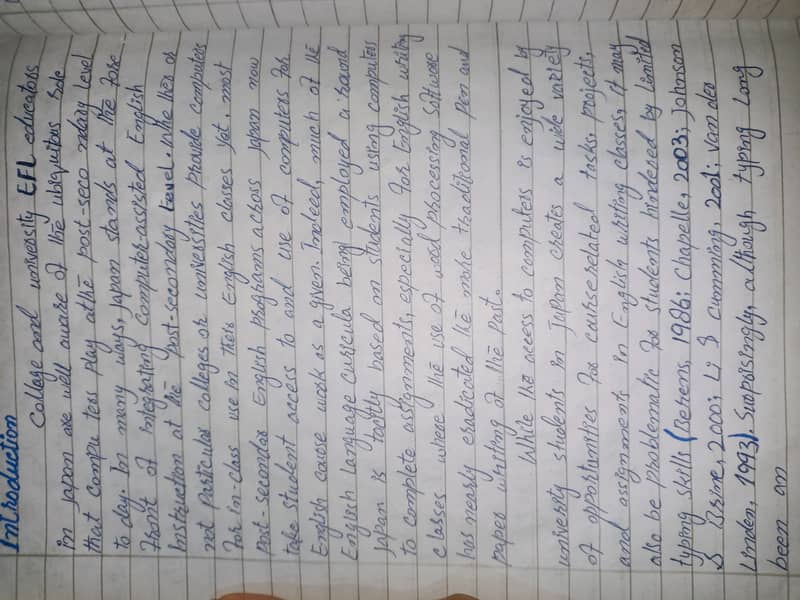 Introduction
Collage and university EFL educators
in japan are well aware of the ubiquitous role
that compu ters play atthe post-seco ndary level
to day. In many ways, Japan stands at the fore
front of integrating Computer-assisted English
Instruction at the post-secondary Level. whe ther or
not Particular colleges or universities Provide computers
for in-class use in their English classes yet, most
post-secondar English programs across Japan now
take student access to and use of computers for
English course work as a given. Indeed, much of the
English language curricula being employed a round
Japan is tacitly based on students using computers
to complete assignments, especially for English writing
classes where the use of word processing software
has nearly eradicated the more traditional pen and
paper writing of the past.
While the access to computers is enjoyed by
university students in Japan creates a wide variety
of opportunities for course related tasks, projects,
and assignments in English writing classes, it may
also be problematic for students hindered by limited
typing skills (Berens, 1986; Chapelle, 2003; Johnson
& Brine, 2000; Li & Cumming, 2001; Van der
Linden, 1993). Surprisingly, although typing Long
been an